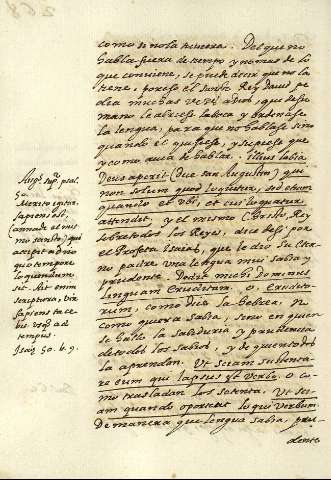 como si no la tuviera. Del que no
habla fuera de tiempo y no mas de lo
que conviene, se puede decir que no la
tiene, por eso el santo Rey David pe
dia muchas veces a dios, que de su
mano le abriese la boca y ordenase
la lengua, para que no hablase sino
quando el quisiese, y supiese que
y como avia de hablar. Illius labia
Deus aperit (dice san Augustin) qui
non solum quod loquitur, sed etiam
quando et ubi, et cui loquatur
attendit, y el mismo Christo, Rey
sobre todos los Reyes, dice de si por
el Profeta Isaias, que le dio su eter
no padre una lengua muy sabia y
prudente. Dedit michi dominus
linguam eruditam. o, erudito
rum, como dice la Hebrea. no
como quiera sabia, sino en quien
se hallo la sabiduria y prudencia
de todos los sabios, y de quien todos
la aprendan. Ut sciam sustenta
re eum qui lapsus est verbo. o co
mo trasladan los setenta. Ut sci
am quando oporteat loqui verbum.
De manera que lengua sabia, pru-
dente
Aug. sup. psal.
50.
Merito igitur
sapiens est,
sancto) qui
accepit a dño
quo tempore
loquendum
sit. Ait enim
scriptura, vir
sapiens tace
bit usq; ad
tempus.
Isai. 50. v. 9.